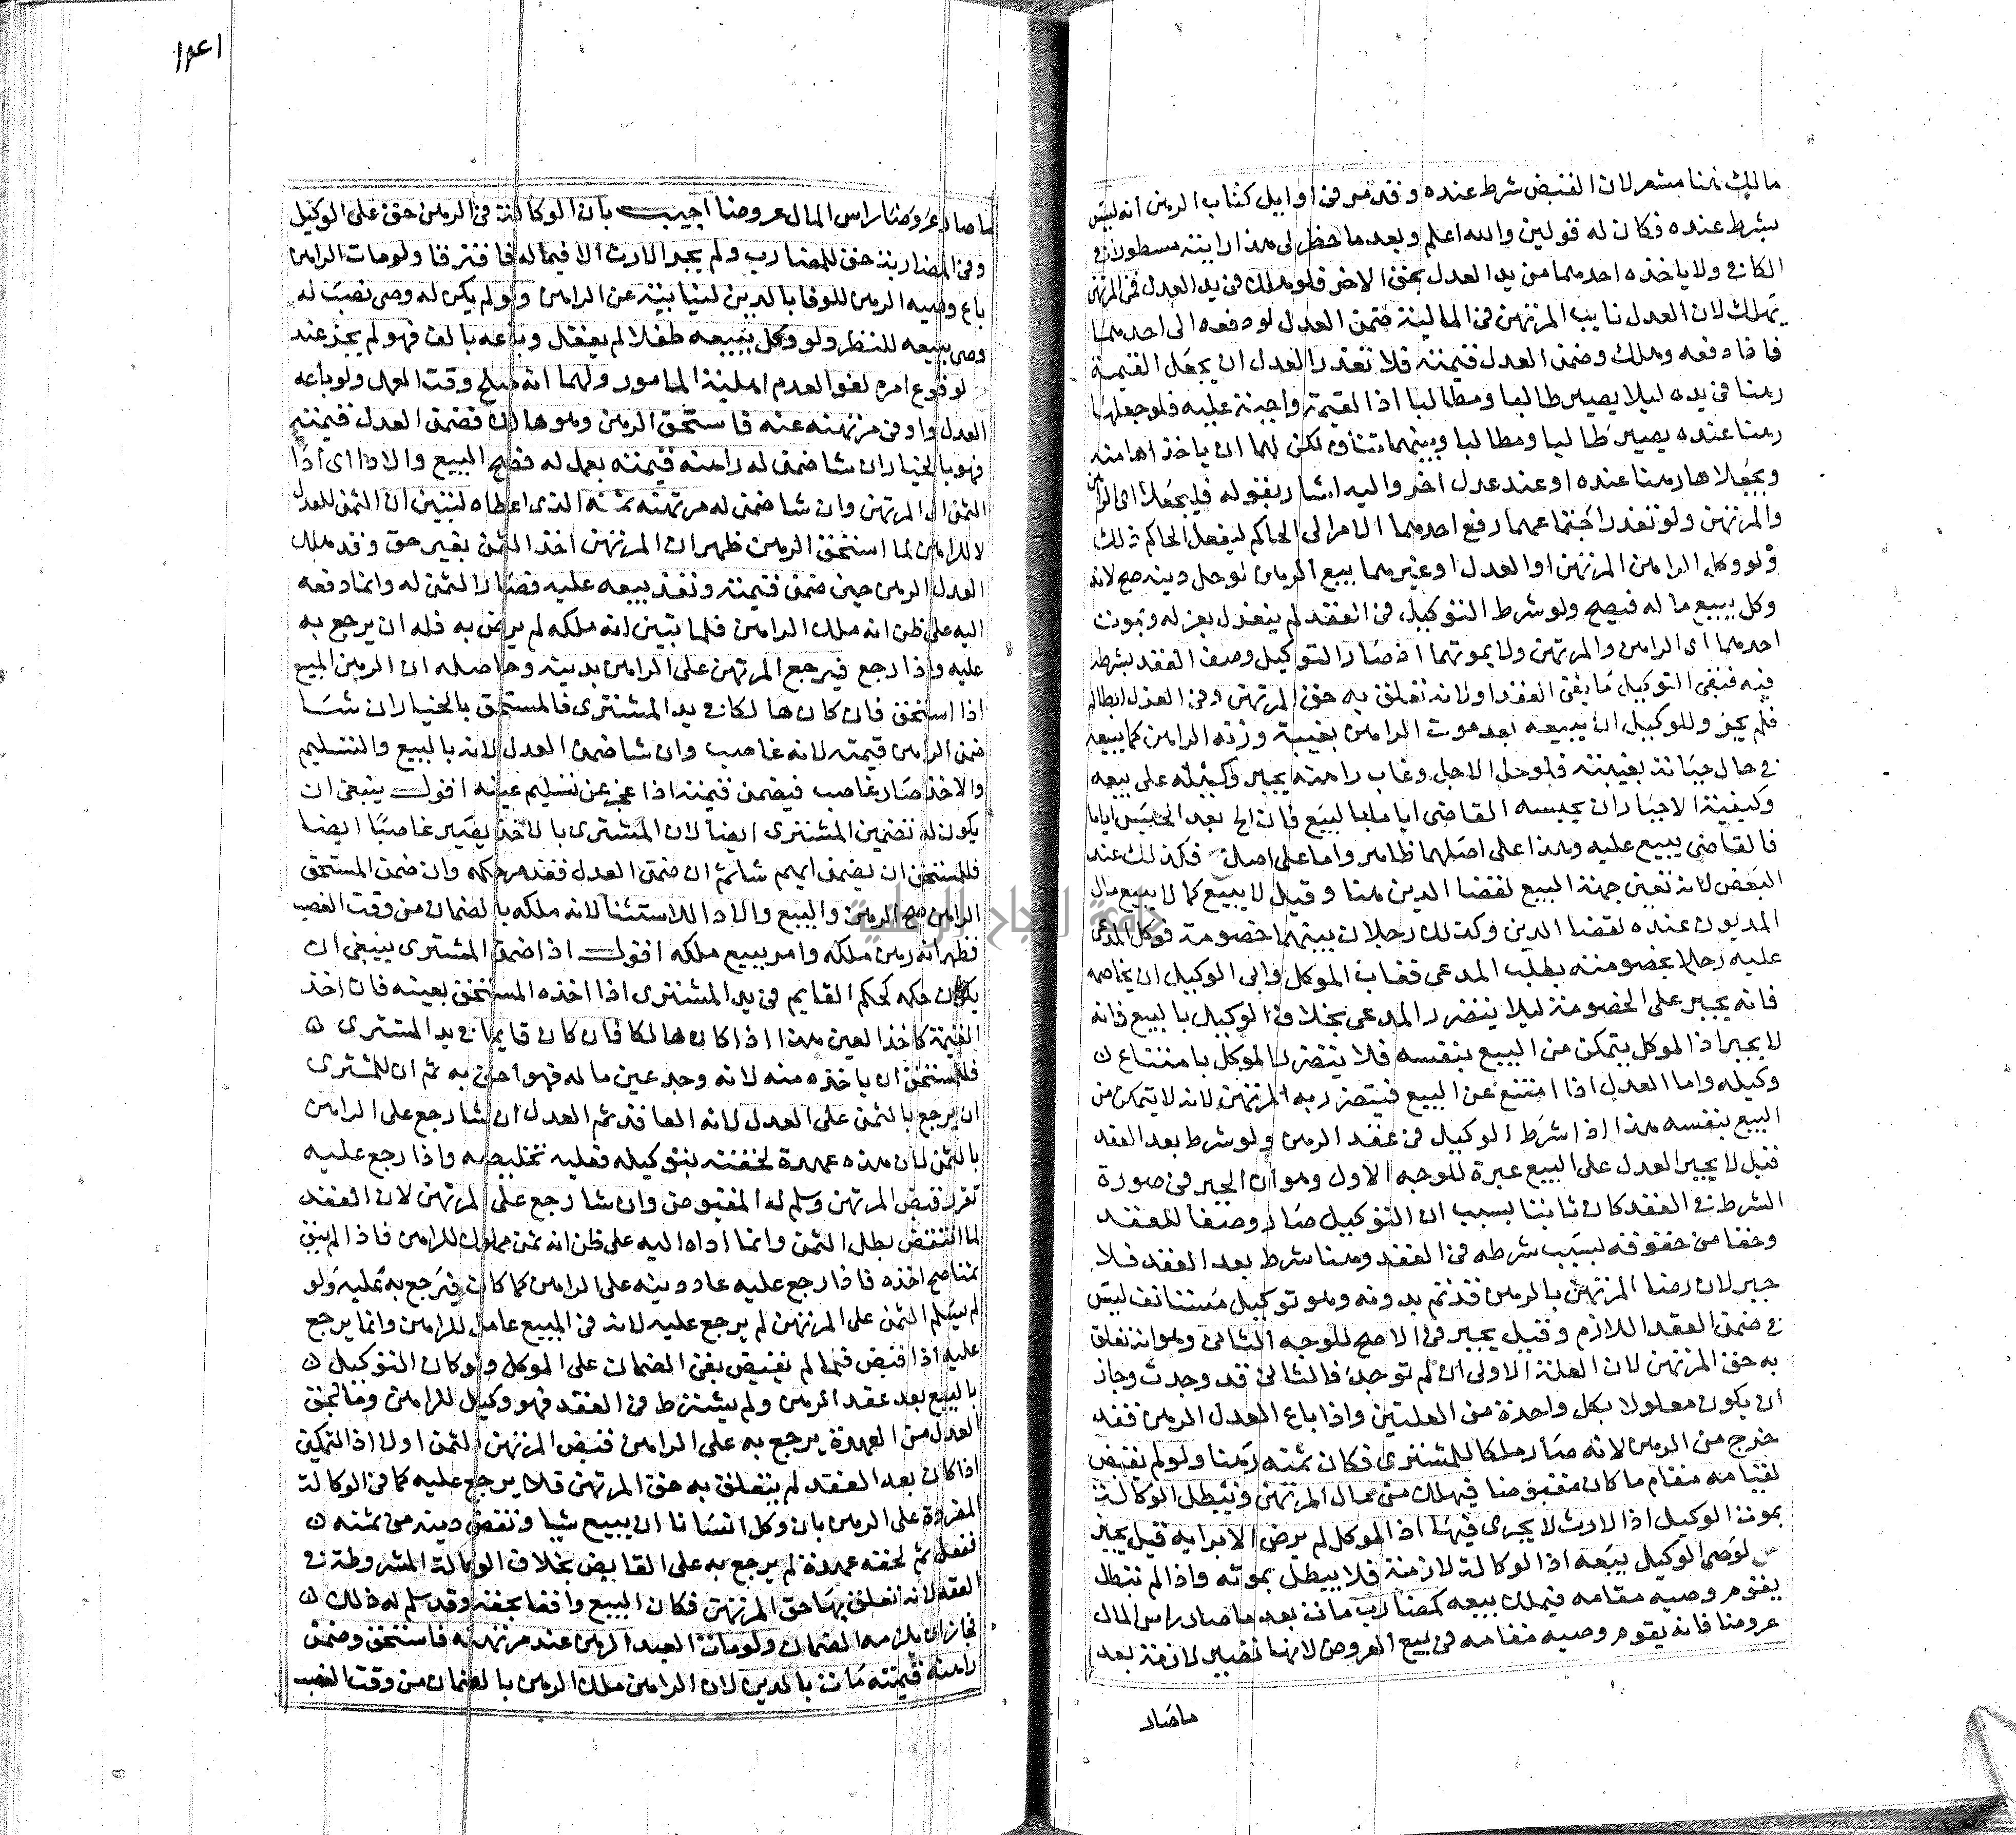 مالك هنا مشعر لان القبض شرط عنده وقد مر في اوايل كتاب الرهن انه ليس
بشرط عنده فكان له قولين والله اعلم وبعد ما خطر لي هذا رايته مسطورا في
الكافي ولا ياخذه احدهما من يد العدل بحق الاخر فلو هلك في يد العدل فمن المرتهن
يهلك لان العدل نايب المرتهن في المالية ضمن العدل لو دفعه الى احدهما
فاذا دفعه وهلك وضمن العدل قيمته فلا تقدر العدل ان يجعل القيمة
رهنا في يده ليلا يصير طالبا ومطالبا اذ القيمة واجبة عليه فلو جعلها
رهنا عنده يصير طالبا ومطالبا وبينهما تناف لكن لهما ان ياخذاها منه
ويجعلاها رهنا عنده او عند عدل اخر واليه اشار بقوله فليجعلا اى الراهن
والمرتهن ولو تعذر اجتماعهما رفع احدهما الامر الى الحاكم ليفعل الحاكم ذلك
ولو وكل الراهن المرتهن او العدل او غيرهما ببيع الرهن لو حل دينه صح لانه
وكل ببيع ماله فيصح ولو شرط التوكيل في العقد لم ينعزل بعزله وبموت
احدهما اى الراهن والمرتهن ولا بموتهما اذ صار التوكيل وصف العقد بشرطه
فيه فتبقى التوكيل ما بقي العقد او لانه تعلق به حق المرتهن وفي العزل ابطاله
فلم يجز وللوكيل ان يبيعه بعد موت الراهن بغيبة ورثة الراهن كما يبيعه
في حال حياته بغيبته فلو حل الاجل وغاب راهنه يجبر وكيله على بيعه
وكيفية الاجبار ان يحبسه القاضي اياما ليبيع فان الح بعد الحبس اياما
فالقاضي يبيع عليه وهذا على اصلهما ظاهر واما على اصل ح فكذلك عند
البعض لانه تعين جهة البيع لقضا الدين هنا وقيل لا يبيع كما لا يبيع مال
المديون عنده لقضا الدين وكذلك رجلان بينهما خصومة فوكل المدعى
عليه رجلا بخصومته بطلب المدعي فغاب الموكل وابى الوكيل ان يخاصمه
فانه يجبر على الخصومة ليلا يتضرر المدعي بخلاف الوكيل بالبيع فانه
لا يجبر اذ الموكل يتمكن من البيع بنفسه فلا يتضرر الموكل بامتناع
وكيله واما العدل اذا امتنع عن البيع فيتضرر به المرتهن لانه لا يتمكن من
البيع بنفسه هذا اذا شرط الوكيل في عقد الرهن ولو شرط بعد العقد
قيل لا يجبر العدل على البيع عبرة للوجه الاول وهو ان الجبر في صورة
الشرط في العقد كان ثابتا بسبب ان التوكيل صار وصفا للعقد
وحقا من حقوقه بسبب شرطه في العقد وهنا شرط بعد العقد فلا
جبر لان رضا المرتهن بالرهن قد تم بدونه وهو توكيل مستانف ليس
في ضمن العقد اللازم وقيل يجبر في الاصح للوجه الثاني وهو انه تعلق
به حق المرتهن لان العلة الاولى ان لم توجد فالثاني قد وجدت وجاز
ان يكون معلولا بكل واحدة من العلتين واذا باع العدل الرهن فقد
خرج من الرهن لانه صار ملكا للمشتري فكان ثمنه رهنا ولو لم نقبض
لقيامه مقام ما كان مقبوضا فيهلك من مال المرتهن وتبطل الوكالة
بموت الوكيل اذ الارث لا يجري فيها اذ الموكل لم يرض الا برايه قيل يجبر
لوصي الوكيل بيعه اذ الوكالة لازمة فلا يبطل بموته واذا لم تبطل
يقوم وصيه مقامه فيملك بيعه كمضارب مات بعد ما صار راس المال
عروضا فانه يقوم وصيه مقامه في بيع العروض لانها تصير لازمة بعد
ماصار
١٥٤١
ما صار عروضا راس المال عروضا اجيب بان الوكالة في الرهن حق على الوكيل
وفي المضاربة حق للمضارب ولم يجر الارث الا فيما له فافترقا ولو مات الراهن
باع وصيه الرهن للوفا بالدين لنيابته عن الراهن ولو لم يكن له وصي نصب له
وصي يبيعه للنظر ولو وكل ببيعه طفلا لم يعقل وباعه بالغا فهو لم يجز عند
لوقوع امره لغوا لعدم اهلية المامور ولهما انه صلح وقت العمل ولو باعه
العدل واوفى مرتهنه عنه فاستحق الرهن وهو هالك فضمن العدل قيمته
فهو بالخيار ان شا ضمن له راهنه قيمته بعمل له فصح البيع والادا اى ادا
الثمن الى المرتهن وان شا ضمن له مرتهنه ثمنه الذى اعطاه لتبين ان الثمن للعدل
لا للراهن لما استحق الرهن ظهر ان المرتهن اخذ الثمن بغير حق وقد ملك
العدل الرهن حين ضمن قيمته ونفذ بيعه عليه فصار الثمن له وانما دفعه
اليه على ظن انه ملك الراهن فلما تبين انه ملكه لم يرض به فله ان يرجع به
عليه واذا رجع فيرجع المرتهن على الراهن بدينه وحاصله ان الرهن المبيع
اذا استحق فان كان هالكا في يد المشتري فالمستحق بالخيار ان شا
ضمن الراهن قيمته لانه غاصب وان شا ضمن العدل لانه بالبيع والتسليم
والاخذ صار غاصب فيضمن قيمته اذا عجز عن تسليم عينه اقول ينبغي ان
يكون له تضمين المشتري ايضا لان المشتري بالاخذ يصير غاصبا ايضا
فللمستحق ان يضمن ايهم شا ثم ان ضمن العدل فقد مر حكمه وان ضمن المستحق
الراهن صح الرهن والبيع والادا للاستثنا لانه ملكه بالضمان من وقت الغصب
فظهر انه رهن ملكه وامر ببيع ملكه اقول اذا ضمن المشتري ينبغي ان
يكون حكمه كحكم القايم في يد المشتري اذا اخذه المستحق بعينه فان اخذ
القيمة كاخذ العين هذا اذا كان هالكا فان كان قايما في يد المشتري
فللمستحق ان ياخذه منه لانه وجد عين ماله فهو احق به ثم ان للمشتري
ان يرجع بالثمن على العدل لانه العاقد ثم العدل ان شا رجع على الراهن
بالثمن لان هذه عهدة لحقته بتوكيله فعليه تخليصه واذا رجع عليه
تقرر قبض المرتهن وسلم له المقبوض وان شا رجع على المرتهن لان العقد
لما انتقض بطل الثمن وانما اداه اليه على ظن انه ثمن مملوك للراهن فاذا لم يبق
ثمنا صح اخذه فاذا رجع عليه عاد دينه على الراهن كما كان فيرجع به عليه ولو
لم يسلم الثمن على المرتهن لم يرجع عليه لانه في البيع عامل للراهن وانما يرجع
عليه اذا قبض فما لم يقبض بقى الضمان على الموكل ولو كان التوكيل
بالبيع بعد عقد الرهن ولم يشترط في العقد فهو وكيل للراهن وما لحق
العدل من العهدة يرجع به على الراهن قبض المرتهن الثمن اولا اذ التمكين
اذا كان بعد العقد لم يتعلق به حق المرتهن فلا يرجع عليه كما في الوكالة
المفردة على الرهن بان وكل انسانا ان يبيع شيا ونقض دينه من ثمنه
ففعل ثم لحقه عهدة لم يرجع به على القابض بخلاف الوكالة المشروطة في
العقد لانه تعلق بها حق المرتهن فكان البيع واقعا بحقه وقد سلم له ذلك
فجاز ان يلزمه الضمان ولو مات العبد الرهن عند مرتهنه فاستحق وضمن
راهنه قيمته مات بالدين لان الراهن ملك الرهن بالضمان من وقت الغصب